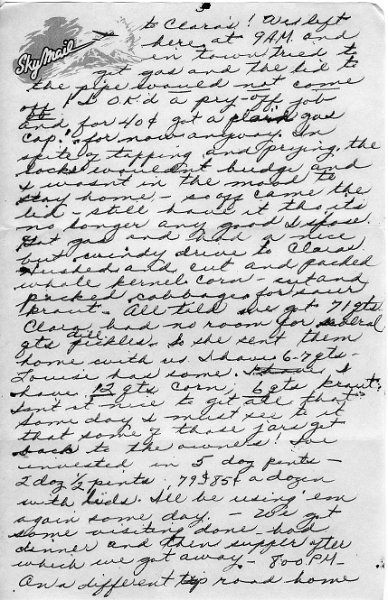 3
Sky Mail
to Clara's! We left
here at 9 AM. and
in town tried to
get gas and the lid to
the pipe would not come
off. P.S. OK'd a pry-off job
and for 40¢ got a plain gas
cap! for now anyway. In
spite of tapping and prying, the
locks wouldn't budge and
I wasn't in the mood to
stay home - so off came the
lid - still have it tho its
no longer any good I s'pose.
Got gas and had a nice
but windy drive to Claras
Husked and cut and packed
whole kernel corn - cut and
packed cabbage for saur
kraut. - All told we got 71 qts
Clara had no room for several
qts pickles. So she sent them
some with us. I have 6-7 qts -
Louise has some. I
have 12 qts corn, 6 qts kraut!
Isn't it nice to git all that.
Some day I must see to it
that some of those jars get
back to the owners! I've
invested in 5 doz pints -
2 doz ½ pints. 79 & 85¢ a dozen
with lids. I'll be using 'em
again some day. - We got
some visiting done had
dinner and then supper after
which we got away - 8:00 P.M -
On a different road home